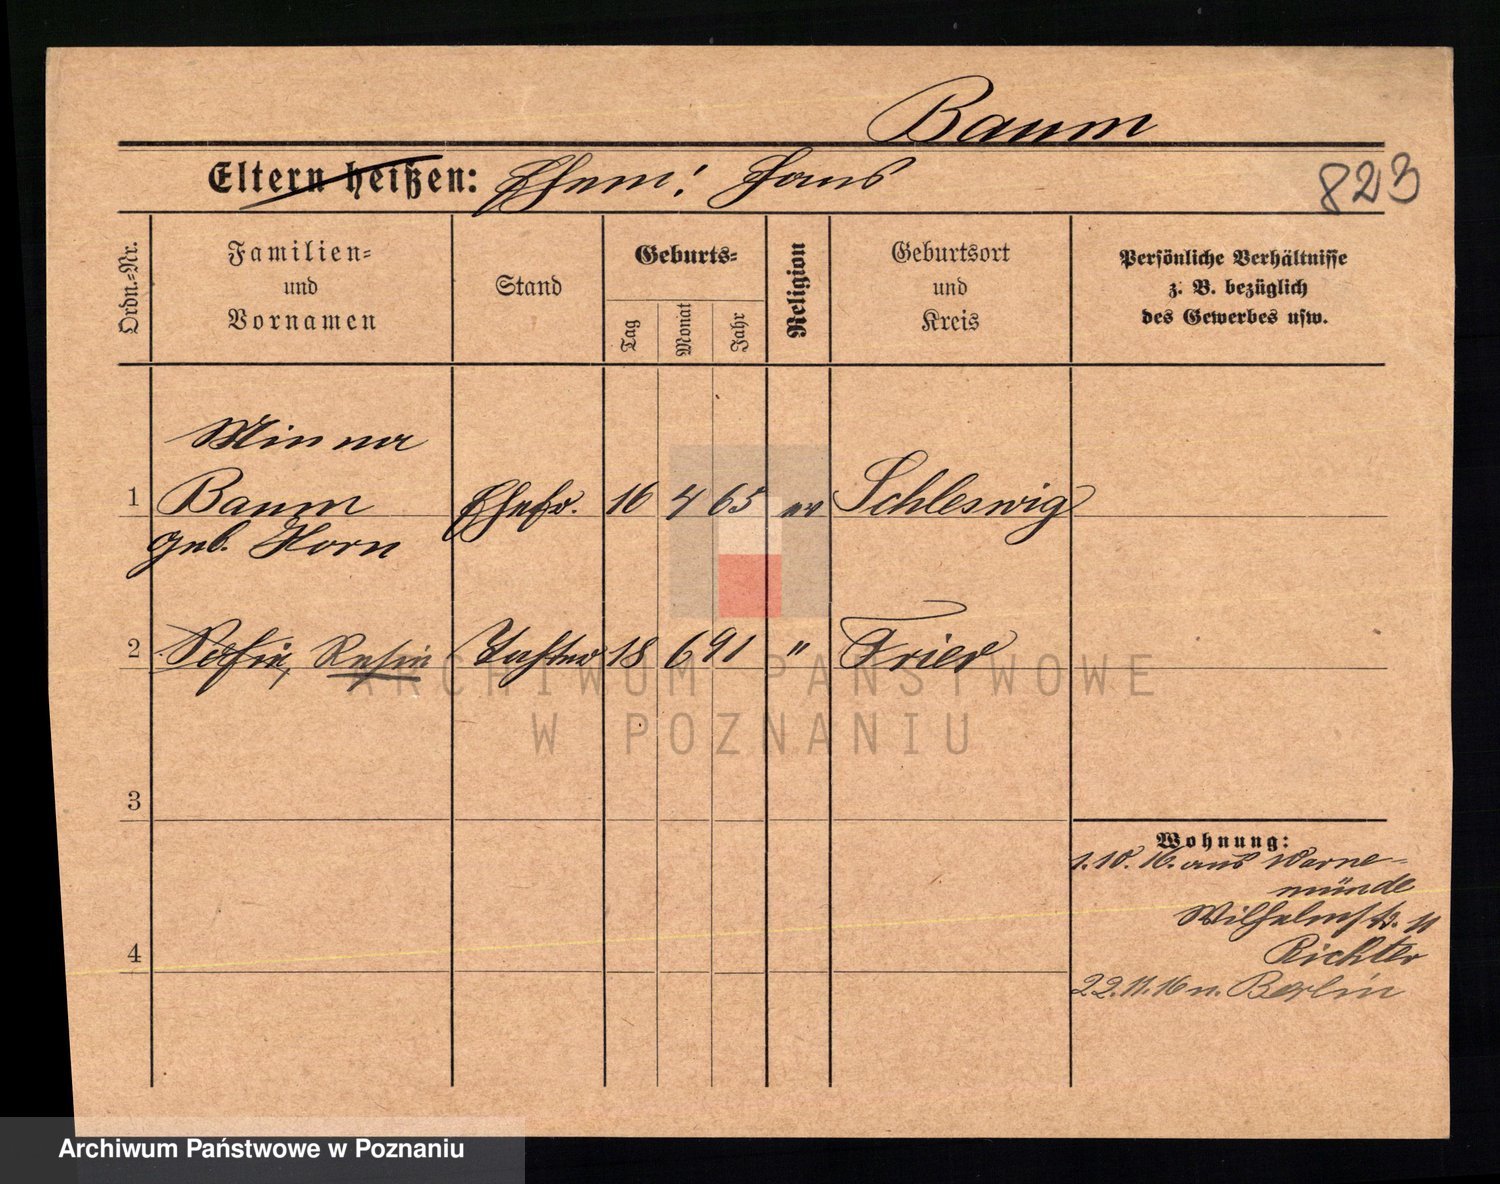 Baum
Eltern heißen: Ehem: Hans
823
Ordn.=Nr.
Familien=
und
Vornamen
Stand
Geburts=
Tag
Monat
Jahr
Religion
Geburtsort
und
Kreis
Persönliche Verhältnisse
z. B. bezüglich
des Gewerbes usw.
Minna
1 Baum Ehefr. 16 4 65 ev Schleswig
geb. Horn
2 Tochter 18 6 91 " Trier
ARCHIWUM PAŃSTWOWE
W POZNANIU
3
Wohnung:
1.10.16. aus Warne-
münde
Wilhelmstr. 11
4 Richter
22.11.16 n. Berlin
Archiwum Państwowe w Poznaniu